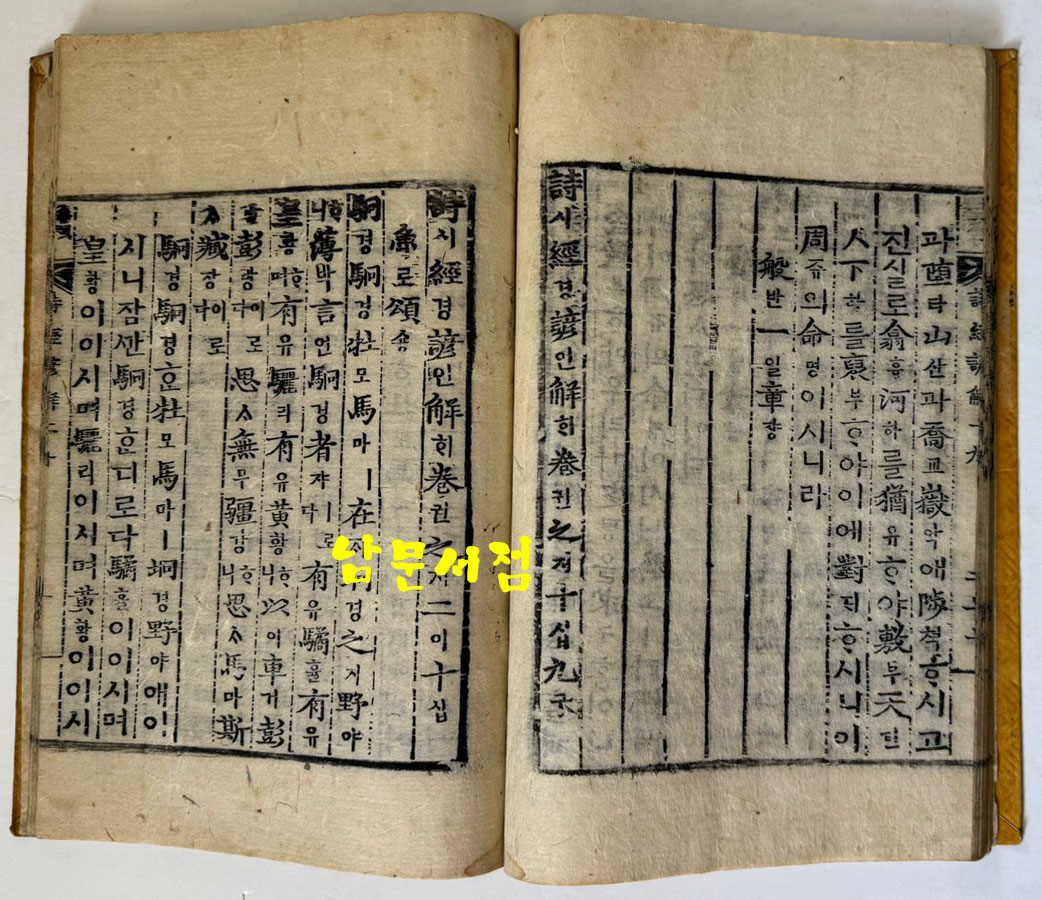 詩經諺解十九
과墮타山산과喬교嶽악애陟척ᄒᆞ시고
진실로翕흡河하를猶유ᄒᆞ야敷부天텬
ㅅ下하를裒부ᄒᆞ야이에對ᄃᆡᄒᆞ시니이
周쥬의命명이시니라
般반一일章쟝
詩시經경諺언解ᄒᆡ卷권之지十십九구
詩시經경諺언解ᄒᆡ卷권之지二이十십
魯로頌숑
駉경駉경牡모馬마ㅣ在ᄌᆡ坰경之지野야
ᄒᆞ니薄박言언駉경者쟈ㅣ로다有유驈휼有유
皇황ᄒᆞ며有유驪리有유黃황ᄒᆞ니以이車거彭
방彭방이로다思ᄉᆞ無무疆강ᄒᆞ니思ᄉᆞ馬마斯
ᄉᆞ臧장이로다
駉경駉경ᄒᆞᆫ牡모馬마ㅣ坰경野야애이
시니잠ᄭᅡᆫ駉경ᄒᆞᆫ디로다驈휼이이시며
皇황이이시며驪리이시며黃황이이시
詩經諺解二十
남문서점